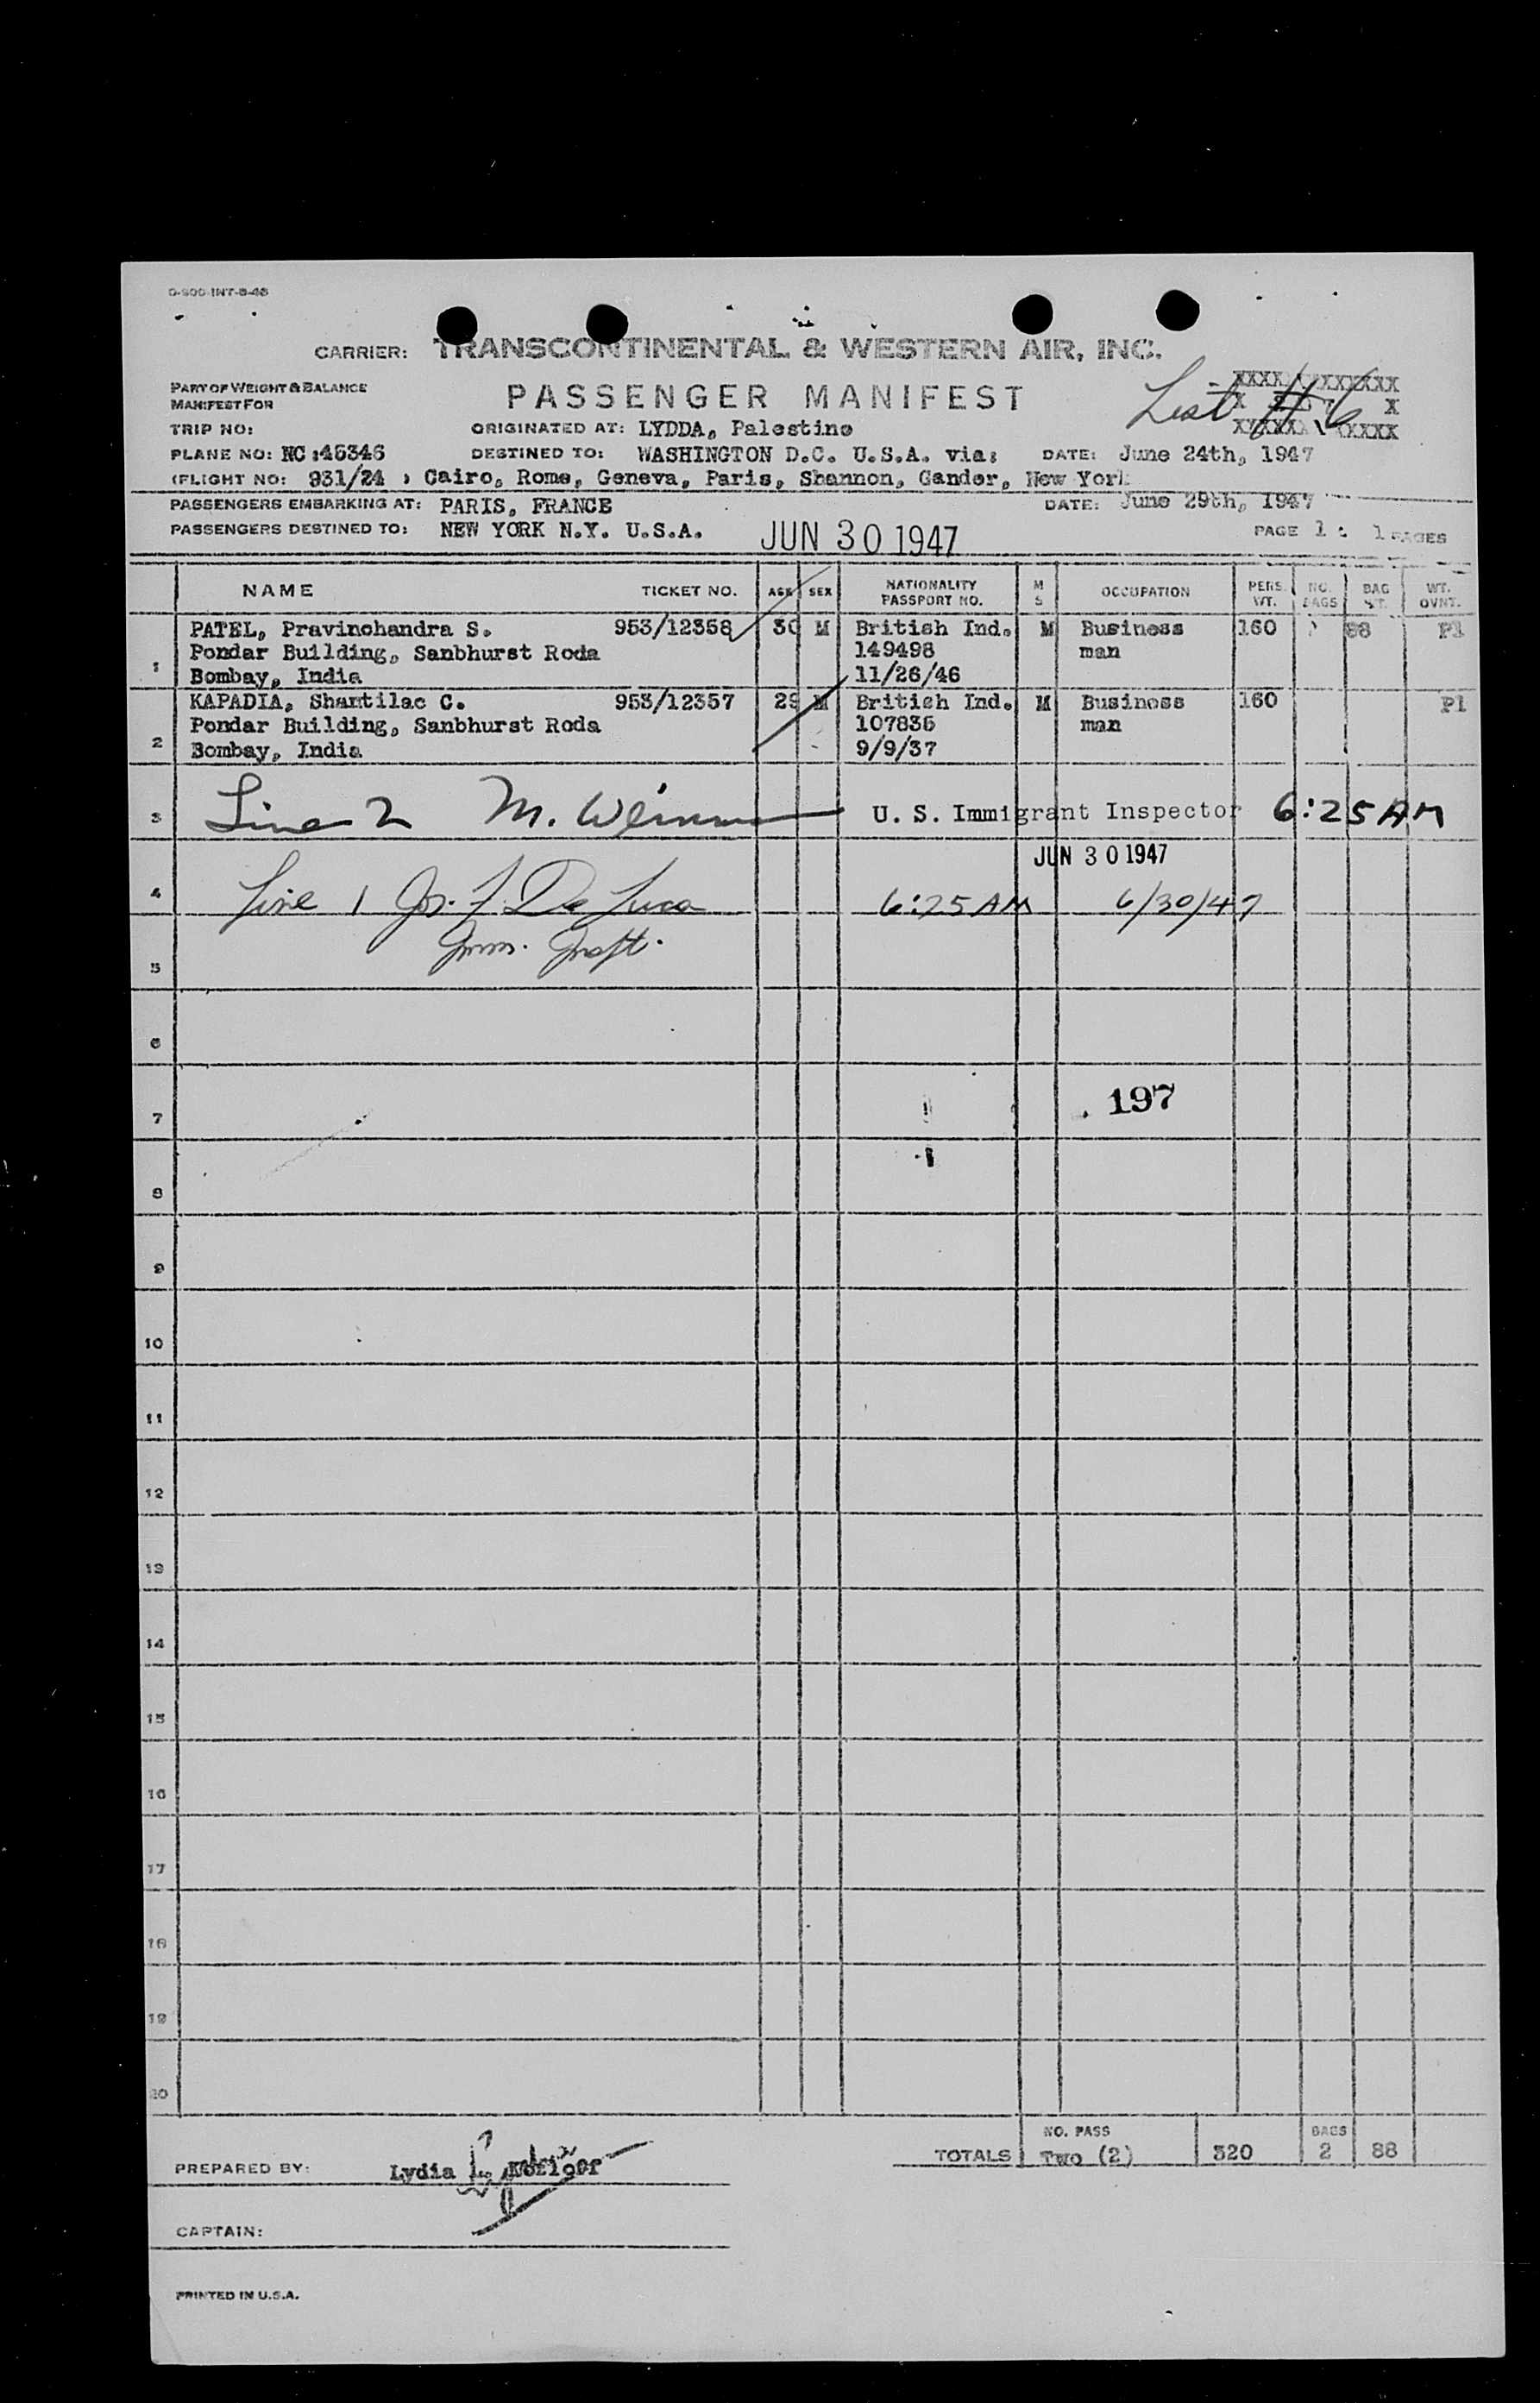 O-900-INT-8-46
CARRIER: TRANSCONTINENTAL & WESTERN AIR, INC.
PART OF WEIGHT & BALANCE
MANIFEST FOR
PASSENGER MANIFEST
List # 6
XXXX XXXXXXX
X X
XXXXX XXXXX
TRIP NO: ORIGINATED AT: LYDDA, Palestine
PLANE NO: NC :45346 DESTINED TO: WASHINGTON D.C. U.S.A. via: DATE: June 24th, 1947
(FLIGHT NO: 931/24 ) Cairo, Rome, Geneva, Paris, Shannon, Gander, New York
PASSENGERS EMBARKING AT: PARIS, FRANCE DATE: June 29th, 1947
PASSENGERS DESTINED TO: NEW YORK N.Y. U.S.A. JUN 30 1947 PAGE 1 : 1 PAGES
NAME TICKET NO. AGE SEX NATIONALITY PASSPORT NO. M S OCCUPATION PERS. WT. NO. BAGS BAG WT. WT. OVNT.
PATEL, Pravinchandra S. 953/12358 30 M British Ind. M Business 160 88 P1
Pondar Building, Sanbhurst Roda 149498 man
1 Bombay, India 11/26/46
KAPADIA, Shantilac C. 953/12357 29 M British Ind. M Business 160 P1
Pondar Building, Sanbhurst Roda 107836 man
2 Bombay, India 9/9/37
3 Line 2 M. U. S. Immigrant Inspector 6:25 AM
JUN 30 1947
4 Line 1 Jos. F. De Luca 6:25 AM 6/30/47
Imm. Inspt.
5
6
7 197
8
9
10
11
12
13
14
15
16
17
18
19
20
NO. PASS BAGS
TOTALS Two (2) 320 2 88
PREPARED BY: Lydia
CAPTAIN:
PRINTED IN U.S.A.